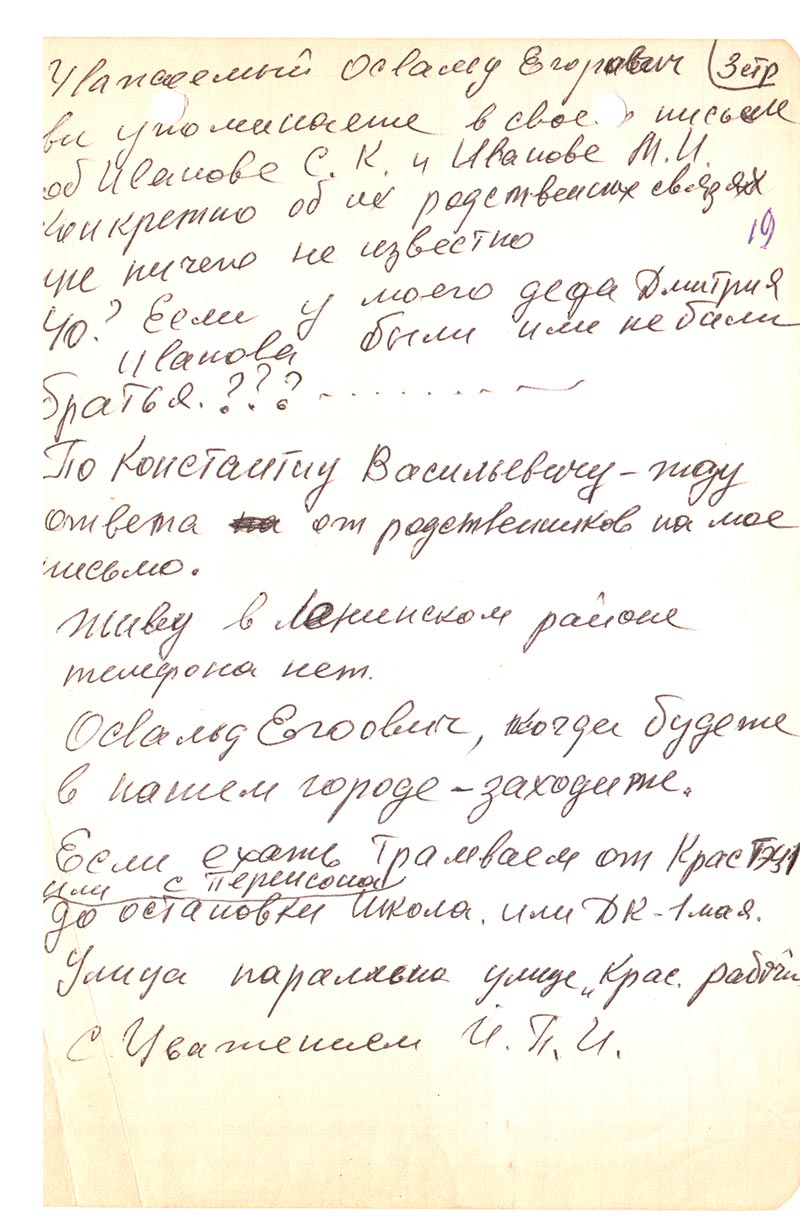 Уважаемый Освальд Егорович 3 стр
вы упоминаете в своем письме
об Иванове С. К. и Иванове М.И.
Конкретно об их родственных связях
19
уже ничего не известно
Чо? Если у моего деда Дмитрия
Иванова были или не были
братья. ???
По Константину Васильевичу – жду
ответа от родственников на мое
письмо.
Живу в Ленинском районе
телефона нет.
Освальд Егоович, когда будете
в нашем городе – заходите.
Если ехать трамваем от КрасТЭЦ1
или с Перенсона
до остановки Школа. или ДК-1 мая.
Улица паралельна улице „Крас. рабочий
С Уважением И. П. И.